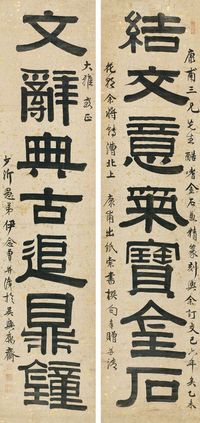 康甫三兄先生酷嗜金石尤精篆刻與余訂交已年矣乙未
結文意氣寶金石
花朝余將轉漕北上 康甫出紙索書撰句奉贈並請
大雅教正
文辭典古追鼎鐘
少沂愚弟伊念曾並識於吳興廨齋